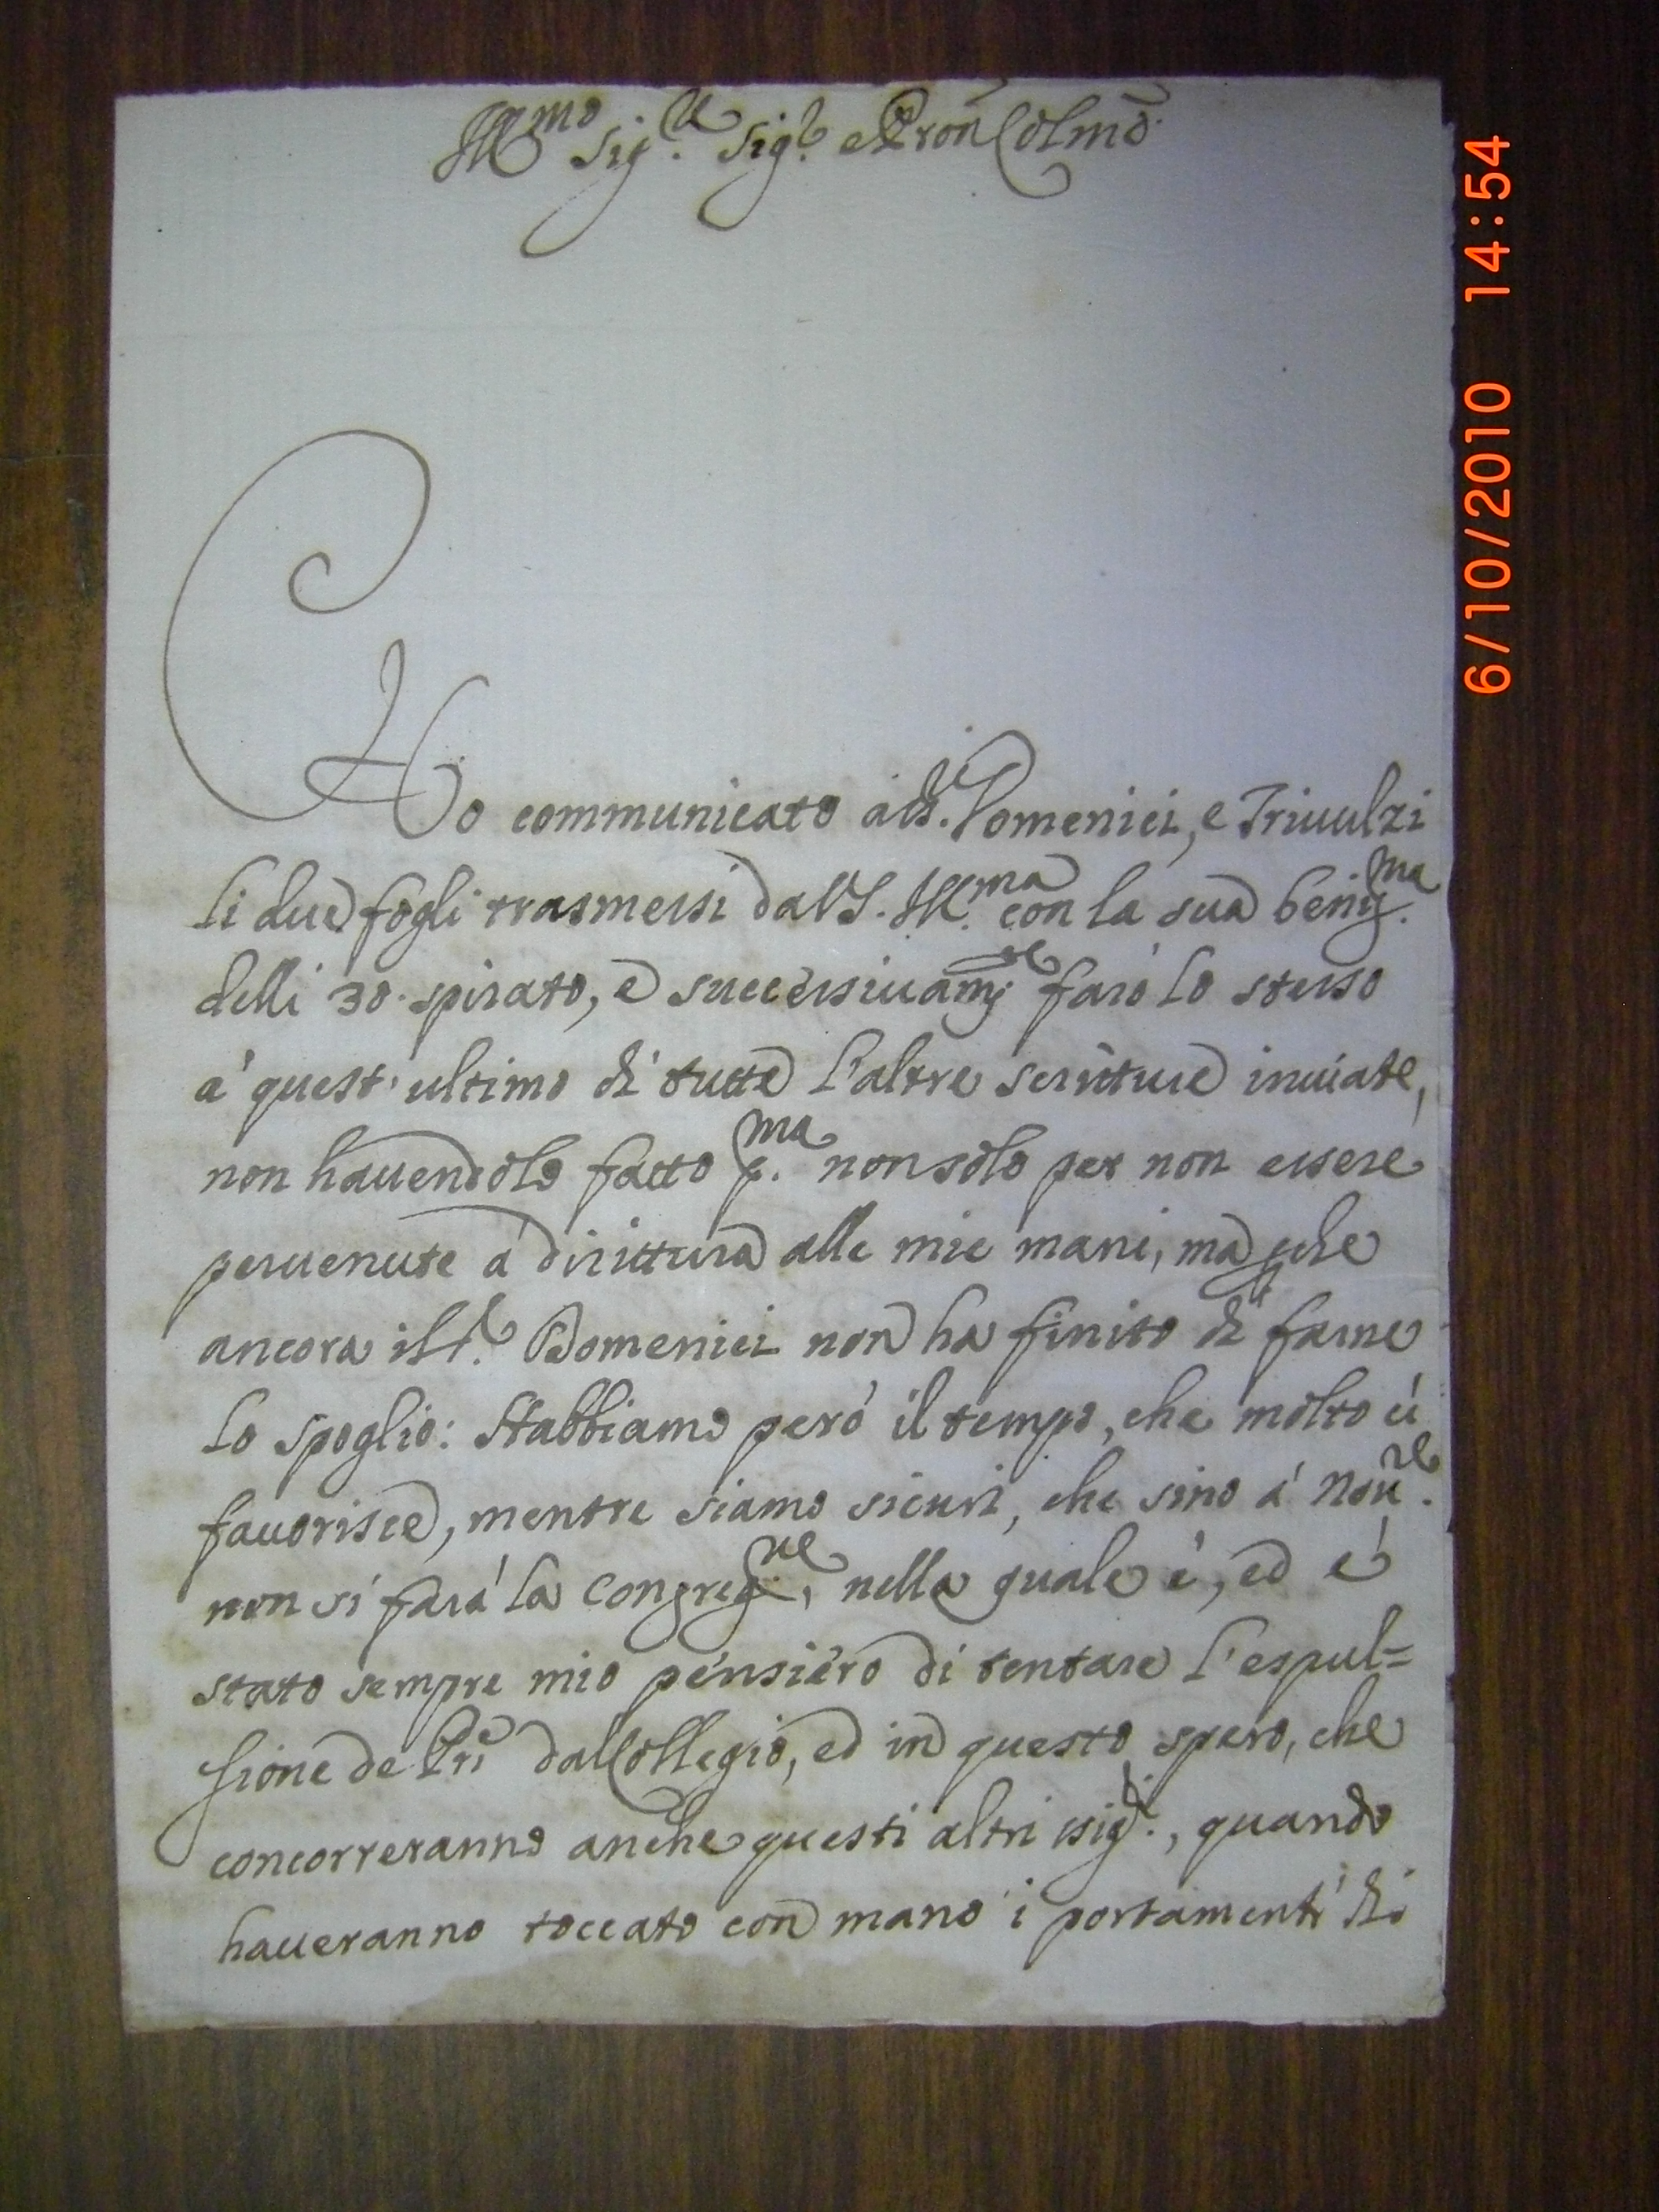 Ill.mo Sig.re Sig.r e Pron Colmo
Ho communicato a i SS.ri Domenici, e Trivulzi
li due fogli trasmessi da V.S. Ill.ma con la sua benig.ma
delli 30. spirato, e successivam.te farò lo stesso
à quest'ultimo di tutte l'altre scritture inviate,
non havendolo fatto p.ma non solo per non essere
pervenute à dirittura alle mie mani, ma perche
ancora il S.r Domenici non ha finito di farne
lo spoglio: Habbiamo però il tempo, che molto ci
favorisce, mentre siamo sicuri, che sino à Nov.re
non si farà la Congreg.ne, nella quale è, ed è
stato sempre mio pensiero di tentare l'espul=
sione de PPri dal Collegio, ed in questo spero, che
concorreranno anche questi altri Sig.ri, quando
haveranno toccato con mano i portamenti di
6/10/2010 14:54